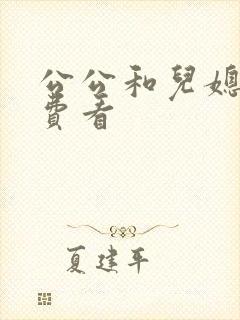 公公和兒媳
費看
夏建平